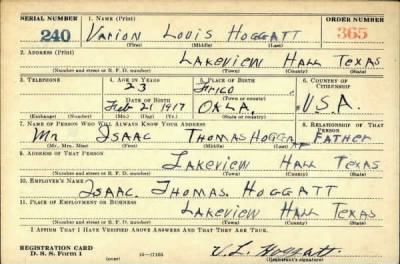 SERIAL NUMBER 1. NAME (Print) ORDER NUMBER
240 Varion Louis Hoggatt 365
(First) (Middle) (Last)
2. ADDRESS (Print)
Lakeview Hall Texas
(Number and street or R. F. D. number) (Town) (County) (State)
3. TELEPHONE 4. AGE IN YEARS 5. PLACE OF BIRTH 6. COUNTRY OF CITIZENSHIP
23 Frico
DATE OF BIRTH (Town or county)
Feb 21 1917 OKLA. USA.
(Exchange) (Number) (Mo.) (Day) (Yr.) (State or country)
7. NAME OF PERSON WHO WILL ALWAYS KNOW YOUR ADDRESS 8. RELATIONSHIP OF THAT PERSON
Mr Isaac Thomas Hoggatt Father
(Mr., Mrs., Miss) (First) (Middle) (Last)
9. ADDRESS OF THAT PERSON
Lakeview Hall Texas
(Number and street or R. F. D. number) (Town) (County) (State)
10. EMPLOYER'S NAME
Isaac. Thomas. Hoggatt
11. PLACE OF EMPLOYMENT OR BUSINESS
Lakeview Hall Texas
(Number and street or R. F. D. number) (Town) (County) (State)
I AFFIRM THAT I HAVE VERIFIED ABOVE ANSWERS AND THAT THEY ARE TRUE.
REGISTRATION CARD
D. S. S. Form 1 (over) 16—17105 V. L. Hoggatt
(Registrant's signature)